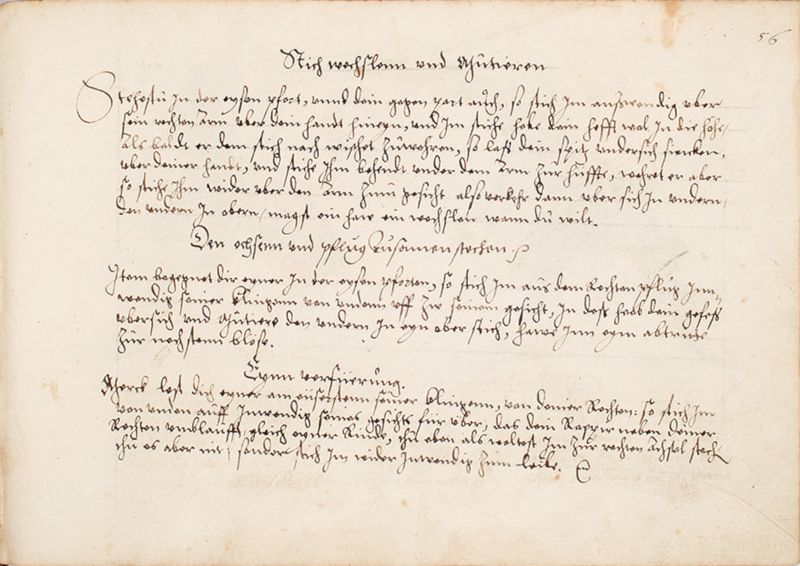 56
Stich wechslenn und Mutieren
Stehestu In der eysen pfort, vnnd dein gegen part auch, so stich Im auswendig vber
sein rechten Arm vber dein handt hineyn, vnd Im stiche hebe dein hefft wol In die höhe,
Als baldt er dem stich nach wischet zuwehren, so lass dein spitz vndersich sincken,
vber deiner handt, vnd stiche Ihm behendt vnder dem Arm zur huffte, wehret er aber
so stiche Ihm wider vber den Arm zum gesicht also verkehr dann vber sich In vndern,
den vndern In obern, magst ein haw ein wechslen wann du wilt.
Den ochsenn vnd pflug Zusamen stecken.
Item begegnet dir eyner In der eysen pforten, so stich Im aus dem Rechten pflug Inn=
wendig seiner klingenn von vndenn vff zu seinem gesicht, In dess heb dein gefess
vbersich vnd Mutiere den vndern In eyn ober stich, hawe Imm eym abtritt
zur nechstenn blöse.
Eynn verfüerung.
Merck lest dich eyner am eüserstenn seiner klingenn, von deiner Rechten: so stich Im
von vnden auff Inwendig seines gesichts für vber, das dein Rappir neben deiner
Rechten vmblaufft, gleich eyner Rinde, thu eben als woltest In zur rechten Achsel stech
thu es aber nit, sonder stich Im wider Inwendig zum leibe.